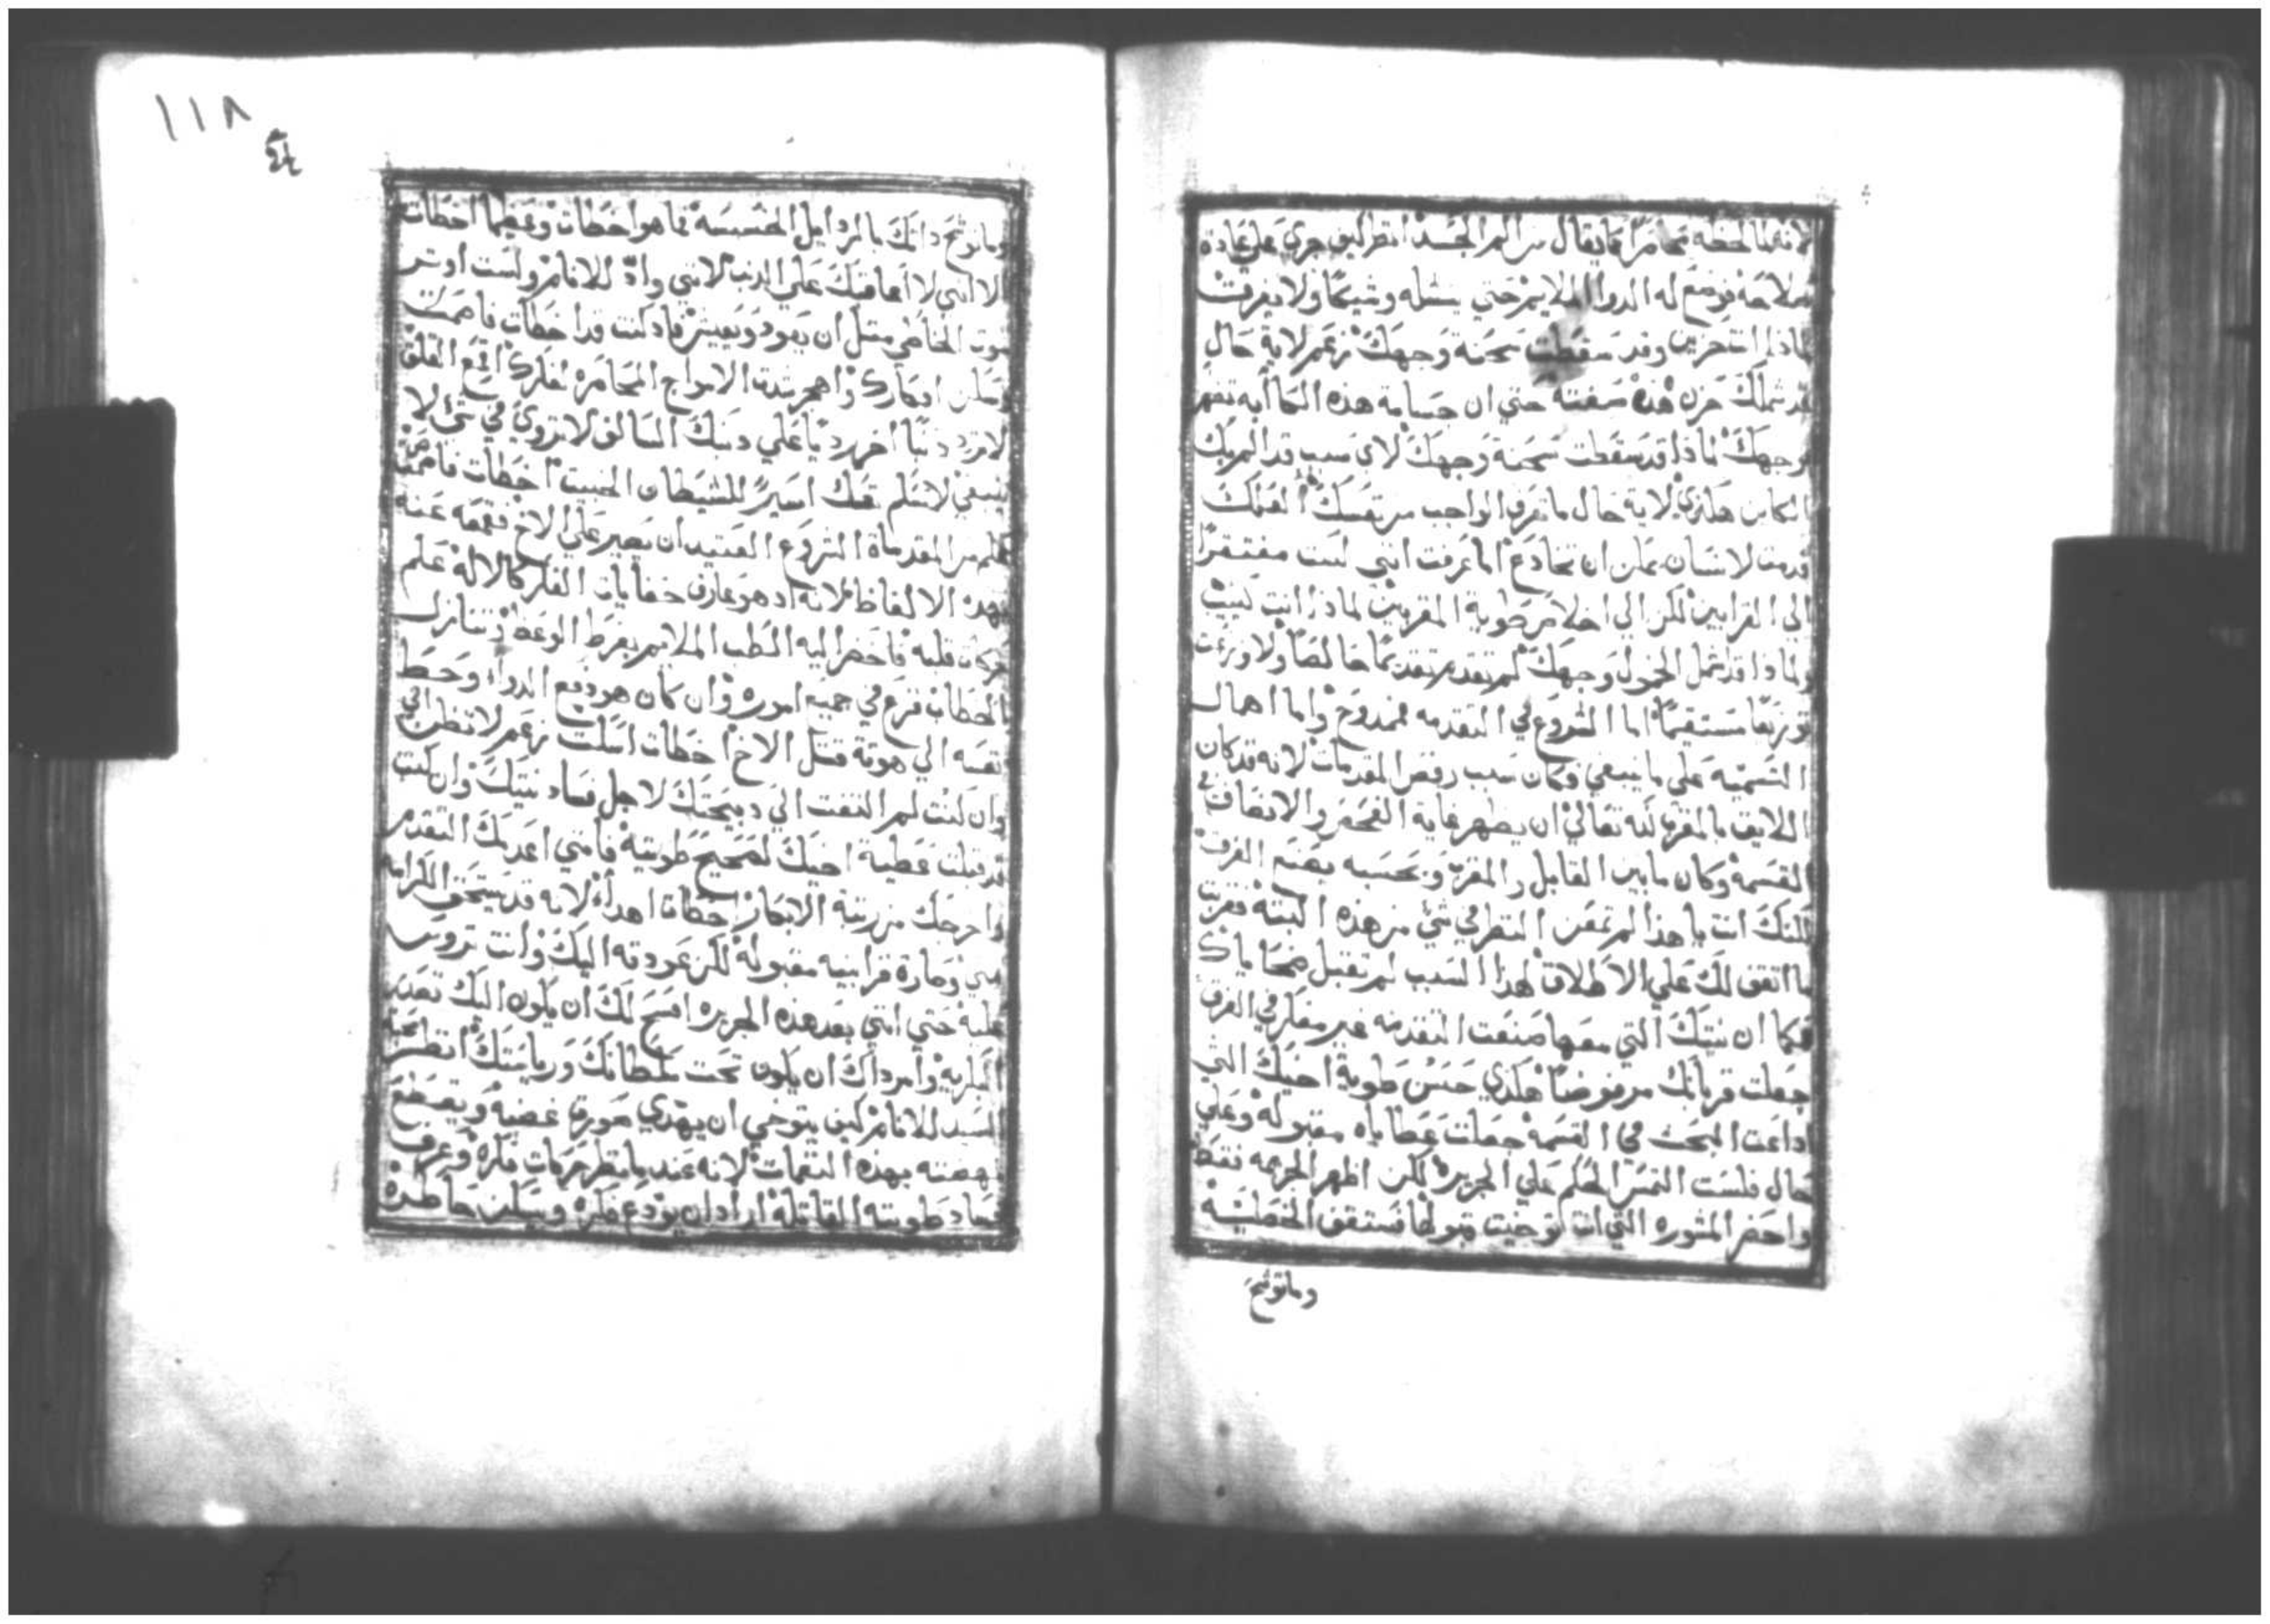 لانه لما لحظه
فملاحة فوضع له الدوا الملايم حتي ينشله وشيكا ولا يغرقن
لماذا انت حزين وقد سقطت سحنة وجهك زعم لاية حال
قد شملك حزن هذه صفته حتي ان جسامة هذه الكاابه تظهر
وجهك لماذا قد سقطت سحنة وجهك لاي سبب قد الم بك
انكاس هكذي لاية حال ما تعرف الواجب من نفسك العلك
قدمت لانسان يمكن ان تخادع اما عرفت انني لست مفتقرا
الي القرابين لكن الي اخلاص طوية المقربين لماذا انت كييب
ولماذا قد شمل الخمول وجهك لم تقدم تقديما خالصا ولا وزعت
توزيعا مستقيما اما الشروع في التقدمه فممدوح واما اهمال
التسميه علي ما ينبغي فكان سبب رفض المقدمات لانه قد كان
اللايق بالمقرب لله تعالي ان يظهر غاية الفحص والانصاف في
القسمة وكان ما بين القابل والمقرب وبحسبه يصنع الفرق
لكنك انت يا هذا لم تمعن النظر في شي من هذه البته فقربت
ما اتفق لك علي الاطلاق لهذا السبب لم تقبل ضحاياك
فكما ان نيتك التي معها صنعت التقدمه غير مفكر في الفرق
جعلت قربانك مرفوضا هكذي حسن طوية اخيك التي
اداعت البحث في القسمة جعلت عطاياه مقبولة وعلي
حال فلست التمس الحكم علي الجريرة لكن اظهر الجريمه فقط
واحضر المشوره التي انت توخيت قبولها فستقف الخطية
وماتوشح
١١٨
وماتوشح ذاتك بالرذايل الخسيسة فما هو اخطات وعظيما اخطات
الا انني لا اعاقبك علي الذنب لانني واد للانام ولست اوثر
موت الخاطي مثل ان يعود ويعيش فاد كنت قد اخطات فاصمت
وسكن افكارك واهجر شدة الامواج المخامره لفكرك اقمع القلق
لا تزد ذنبا اخر رديا علي ذنبك السالف لا تروي في شي لا
ينبغي لا تسلم نفسك اسيرا للشيطان الخبيث اخطات فاصمت
علم من المقدماة الشروع العتيد ان يصير علي الاخ فقمعه عنه
بهذه الالفاظ لانه اد هو عارف خفايات الفكر كالاله علم
حركات قلبه فاحضر اليه الطب الملايم بفرط الوعظ وتنازل
الخطاب فزع في جميع اموره وان كان هو دفع الدواء وحط
نفسه الي هوتة قتل الاخ اخطات اسكت زعم لا تظن اني
وان كنت لم التفت الي دبيحتك لاجل فساد نيتك وان كنت
قد قبلت عطية اخيك لصحيح طويته فانني اعدمك التقدم
واخرجك من رتبة الابكار خطات اهدأ لانه قد يستحق الكرامه
مني وصارة قرابينه مقبولة لكن عودته اليك وانت تروس
عليه حتي انني بعد هذه الجريره افسح لك ان يكون اليك تصدير
البكريه وامر داك ان يكون تحت سلطانك ورياستك انظر محبة
السيد للانام كيف يتوخي ان يهدي سورة غضبه ويقطع
نهضته بهذه النقمات لانه عند ما نظر حركات فكره وعرف
فساد طويته القاتلة اراد ان يودع فكره ويسكن خاطره